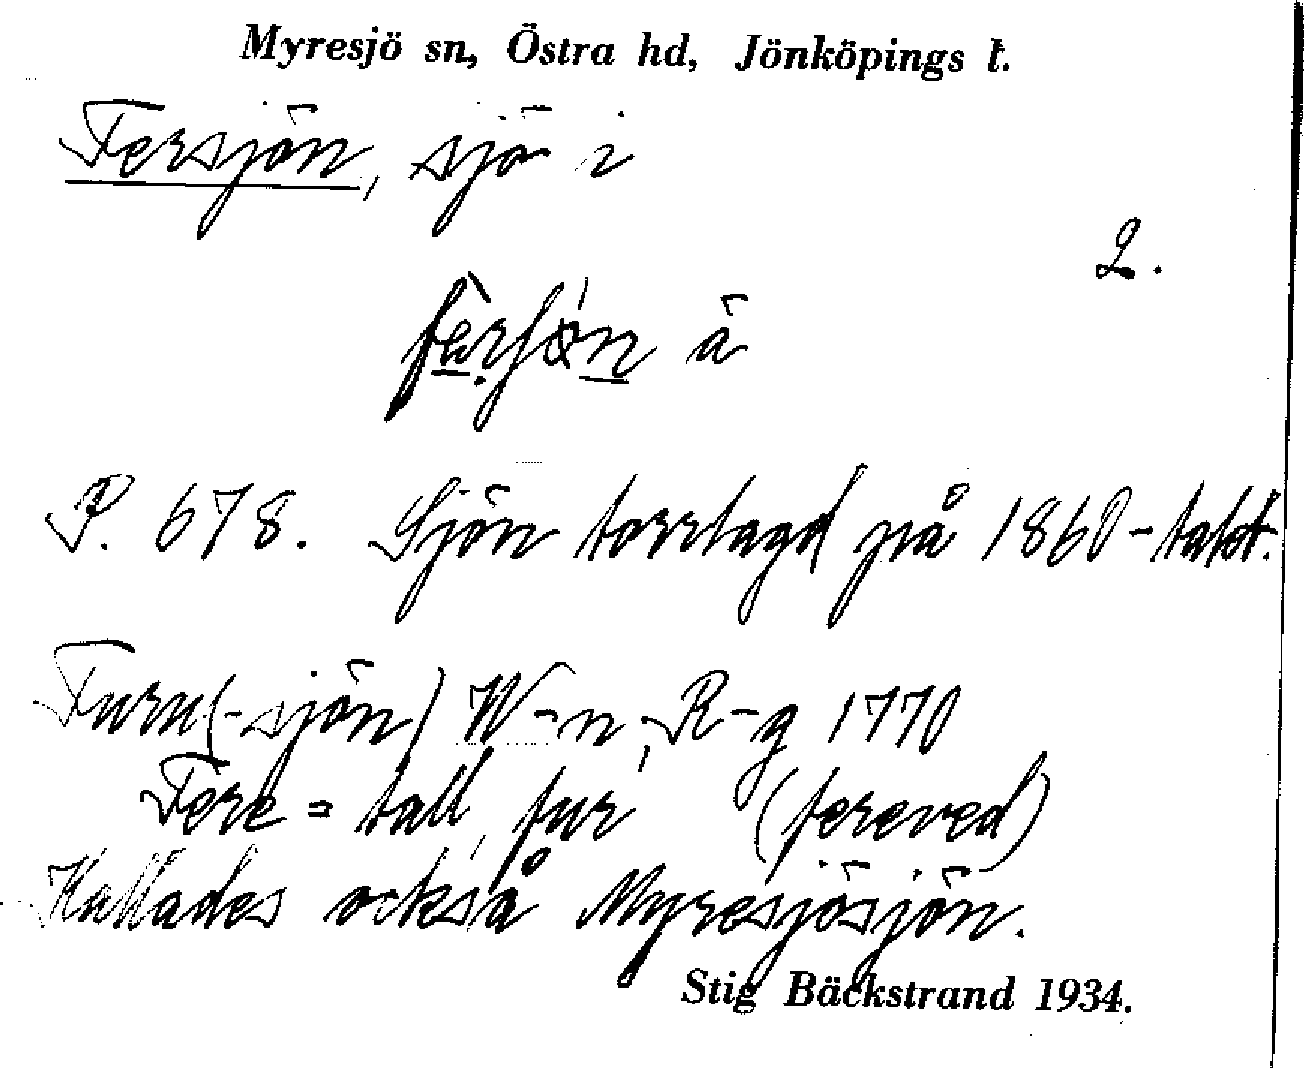 Myresjö sn, Östra hd, Jönköpings l.
Fersjön, sjö i
2.
å
P. 678. Sjön torrlagd på 1860-talet.
Furu(-sjön) W-n, R-g 1770
Fere = tall, fur (fereved)
Kallades också Myresjösjön.
Stig Bäckstrand 1934.